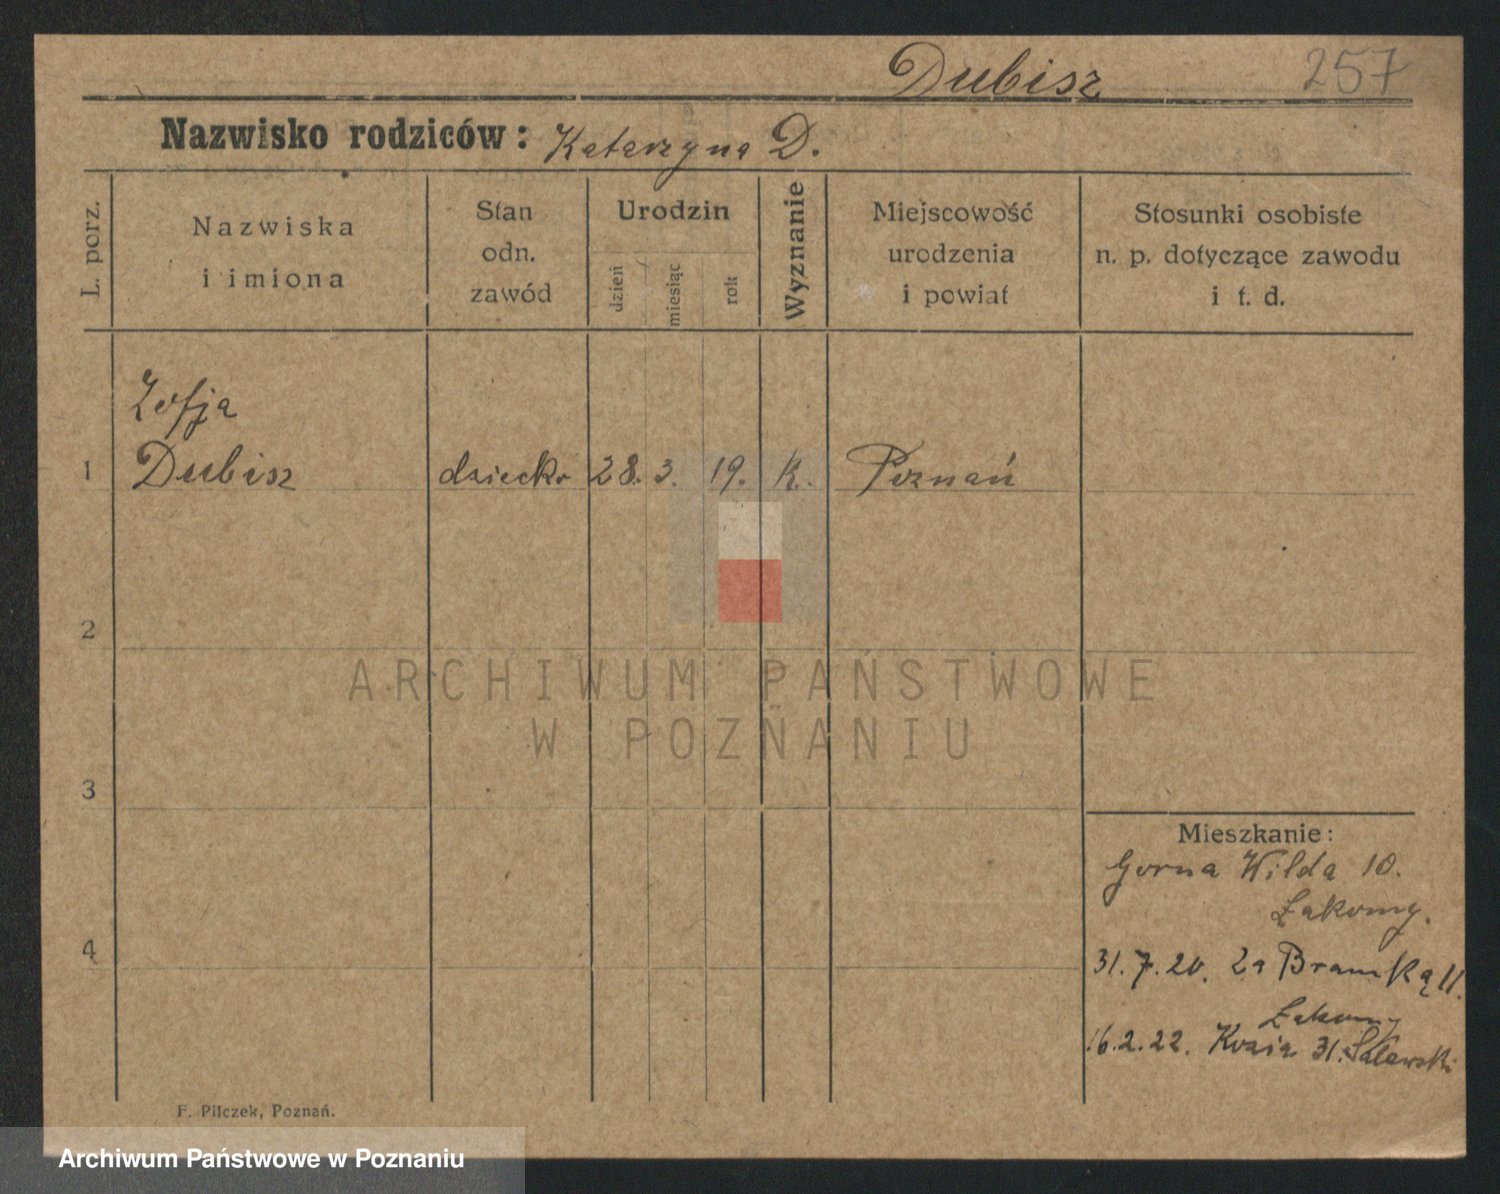 Dubisz 257
Nazwisko rodziców: Katarzyna D.
L. porz.
Nazwiska
i imiona
Stan
odn.
zawód
Urodzin
dzień
miesiąc
rok
Wyznanie
Miejscowość
urodzenia
i powiat
Stosunki osobiste
n. p. dotyczące zawodu
i t. d.
Zofja
1 Dubisz dziecko 28. 3. 19. k. Poznań
2
ARCHIWUM PAŃSTWOWE
W POZNANIU
3
Mieszkanie:
Gorna Wilda 10.
Łakomy.
4
31.7.20. Za Bramką 11.
Łakomy
16.2.22. Kozia 31. Salewski
F. Pilczek, Poznań.
Archiwum Państwowe w Poznaniu